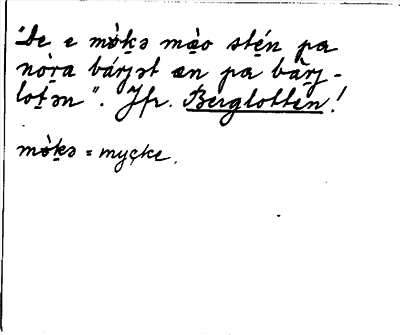 "De e mö̀kə mà̱o sté̱n pa
nò̱ra bárjət æn pa bà̱rj-
lotən". Jfr. Berglotten!
mö̀kə = mycke.